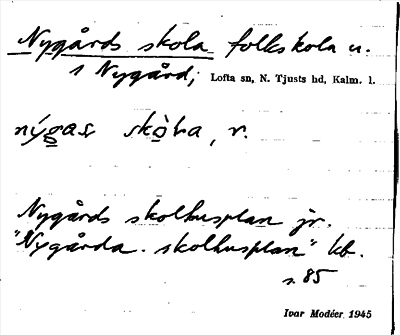 Nygårds skola folkskola u.
s Nygård; Lofta sn, N. Tjusts hd, Kalm. l.
nýgas skòla, r.
Nygårds skolhusplan jr.
"Nygårda. skolhusplan" kb.
s. 85
Ivar Modéer 1945